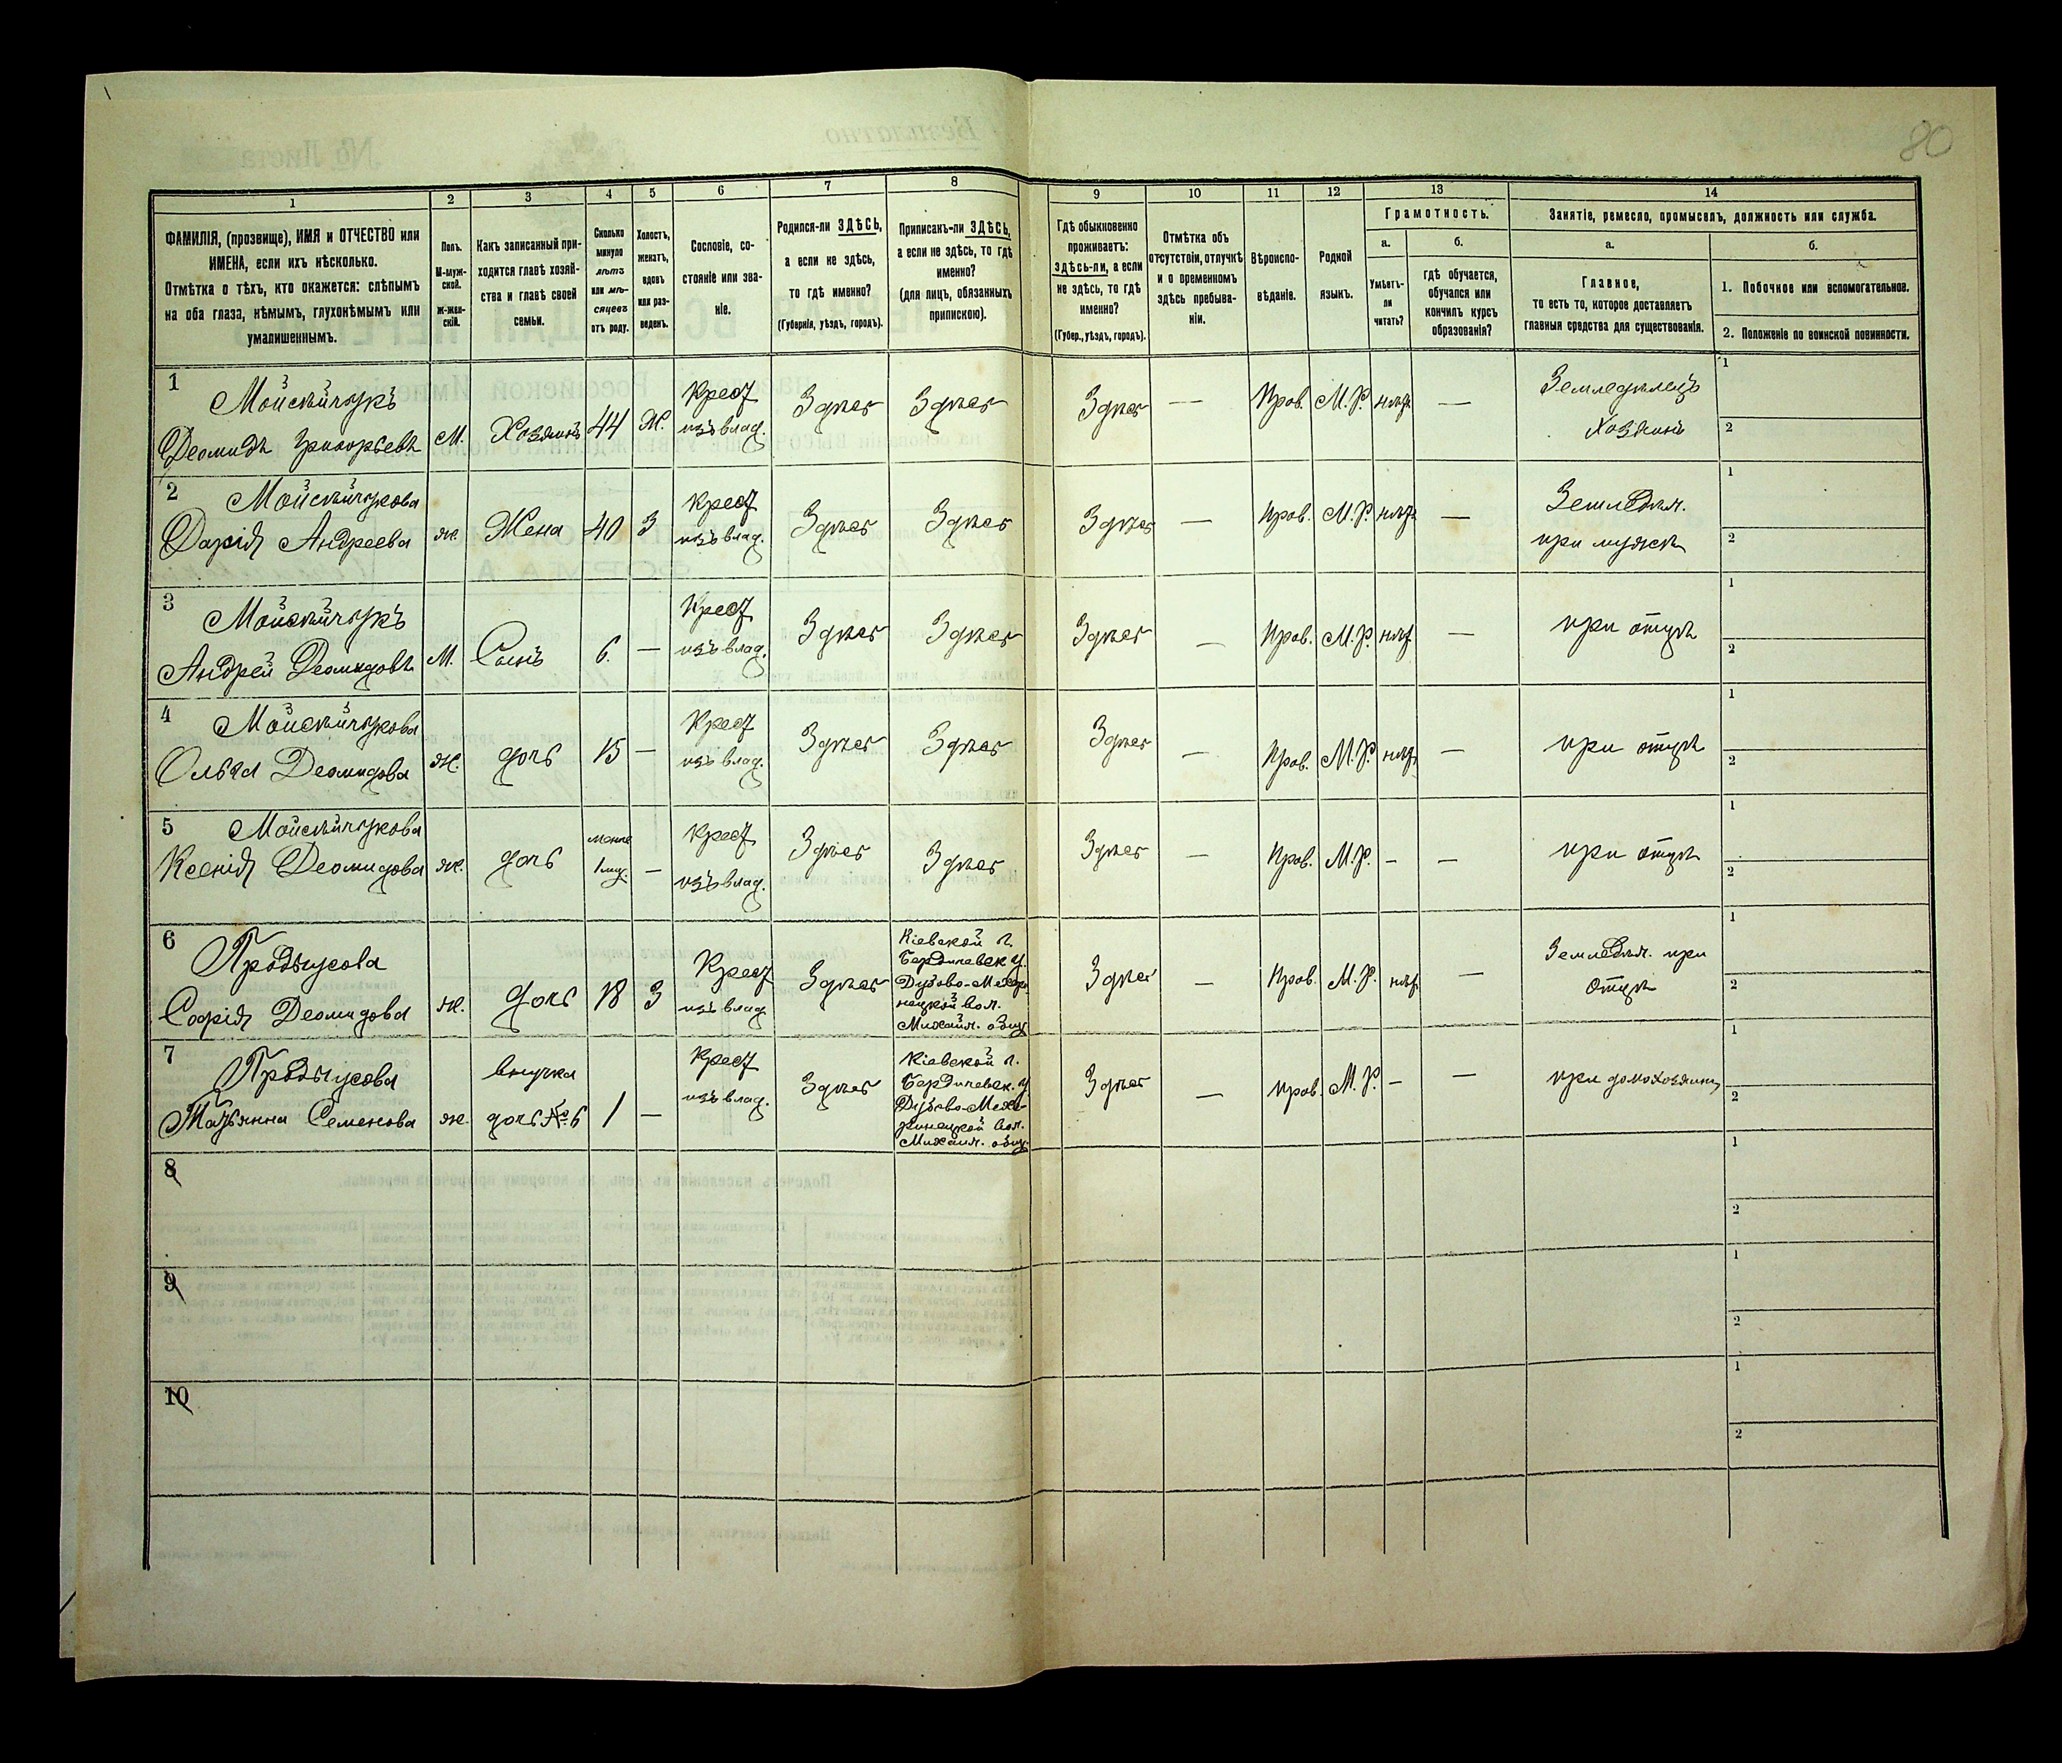 80
1 2 3 4 5 6 7 8 9 10 11 12 13 14
ФАМИЛІЯ, (прозвище), ИМЯ и ОТЧЕСТВО или
ИМЕНА, если ихъ нѣсколько.
Отмѣтка о тѣхъ, кто окажется: слѣпымъ
на оба глаза, нѣмымъ, глухонѣмымъ или
умалишеннымъ.
Полъ.
М-муж-
ской.
Ж-жен-
скій.
Какъ записанный при-
ходится главѣ хозяй-
ства и главѣ своей
семьи.
Сколько
минуло
лѣтъ
или мѣ-
сяцевъ
отъ роду.
Холостъ,
женатъ,
вдовъ
или раз-
веденъ.
Сословіе, со-
стояніе или зва-
ніе.
Родился-ли ЗДѢСЬ,
а если не здѣсь,
то гдѣ именно?
(Губернія, уѣздъ, городъ).
Приписанъ-ли ЗДѢСЬ,
а если не здѣсь, то гдѣ
именно?
(для лицъ, обязанныхъ
припискою).
Гдѣ обыкновенно
проживаетъ:
здѣсь-ли, а если
не здѣсь, то гдѣ
именно?
(Губер., уѣздъ, городъ).
Отмѣтка объ
отсутствіи, отлучкѣ
и о временномъ
здѣсь пребыва-
ніи.
Вѣроиспо-
вѣданіе.
Родной
языкъ.
Грамотность.
а.
Умѣетъ-
ли
читать?
б.
гдѣ обучается,
обучался или
кончилъ курсъ
образованія?
Занятіе, ремесло, промыселъ, должность или служба.
а.
Главное,
то есть то, которое доставляетъ
главныя средства для существованія.
б.
1. Побочное или вспомогательное.
2. Положеніе по воинской повинности.
1
Деомидъ Григорьевъ
М. Хозяинъ 44 Ж.
Крест
изъ влад.
Здѣсь Здѣсь Здѣсь — Прав. М.Р. нѣт —
Земледѣлецъ
Хозяинъ
1
2
2
Дарія Андреева
ж. Жена 40 З
Крест
изъ влад.
Здѣсь Здѣсь Здѣсь — Прав. М.Р. нѣт —
Земледѣл.
при мужѣ
1
2
3
Андрей Деомидовъ
М. Сынъ 6. —
Крест
изъ влад.
Здѣсь Здѣсь Здѣсь — Прав. М.Р. нѣт —
при отцѣ
1
2
4
Ольга Деомидова
ж. дочь 15 —
Крест
изъ влад.
Здѣсь Здѣсь Здѣсь — Прав. М.Р. нѣт —
при отцѣ
1
2
5
Ксенія Деомидова
ж. дочь
менѣе
1 мѣс. —
Крест
изъ влад.
Здѣсь Здѣсь Здѣсь — Прав. М.Р. — —
при отцѣ
1
2
6
Софія Деомидова
ж. дочь 18 З
Крест
изъ влад
Здѣсь
Кіевской г.
Бердичевск у.
Михайл. общ
Здѣсь — Прав. М.Р. нѣт —
Земледѣл. при
отцѣ
1
2
7
Татьянна Семенова
ж.
внучка
дочь № 6
1 —
Крест
изъ влад.
Здѣсь
Кіевской г.
Бердичевск. у
Михайл. общ.
Здѣсь — прав. М.Р. — —
при домохозяинѣ
1
2
8
1
2
9
1
2
10
1
2